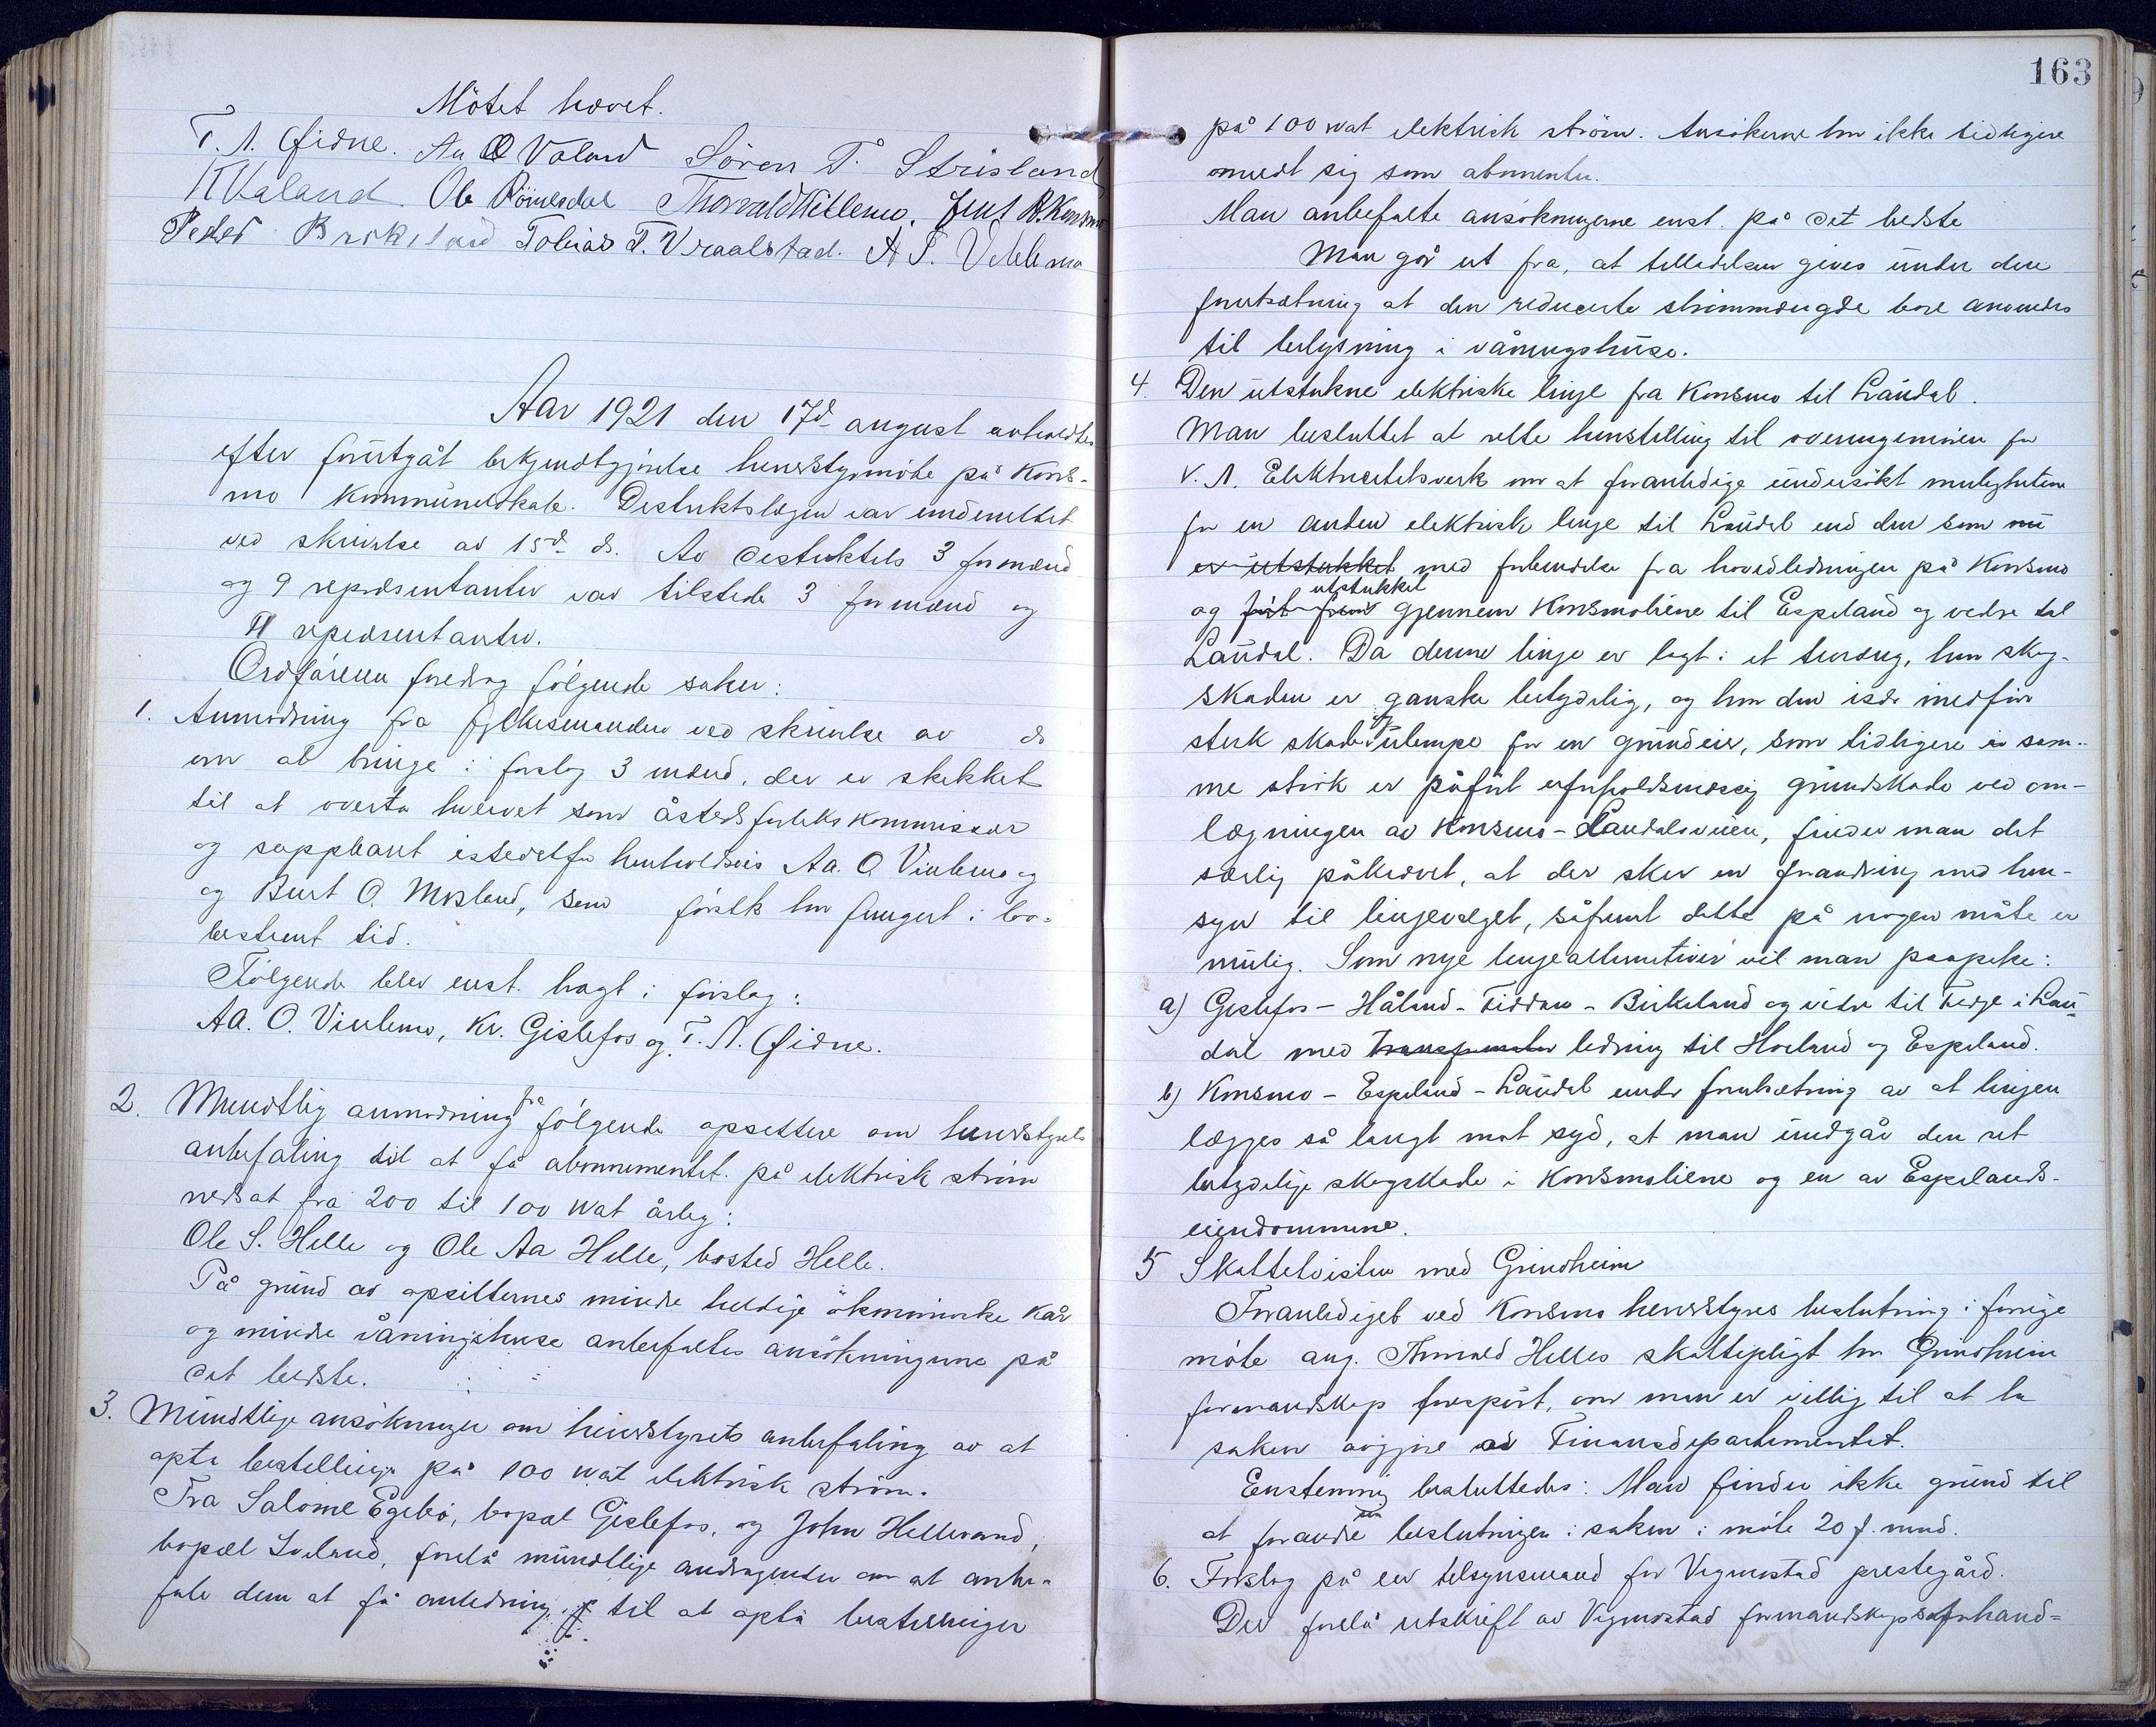 Mötet hævet.
T. A. Øidne. Aa O Valand Sören T. Strisland
K Valand. Ole Römesdal Thorvald Vetlemo. Jens B. Konsmo
Peder Birkeland Tobias T. Vraalstad. A T. Vehlemo
Aar 1921 den 17d august avholdtes
efter forutgåt bekjendtgjörelse herredsstyremöte på Kons-
mo kommunelokale. Distriktslægen var underrettet
ved skrivelse av 15d ds. Av distriktets 3 formænd
og 9 repræsentanter var tilstede 3 formænd og
repræsentanter.
Ordföreren foredrog fölgende saker:
1. Anmodning fra fylkesmanden ved skrivelse av ds
om at bringe i forslag 3 mænd, der er skikket
til at overta hvervet som åstedsforlikskommissær
og suppleant istedetfor henholdsvis Aa. O. Viulemo og
og Bernt O. Mosland, som har fungert i lov-
bestemt tid.
Fölgende blev enst. bragt i forslag:
Aa. O. Viulemo, Kr. Gislefos og T. A. Øidne.
2. Mundtlig anmodning fra fölgende opsittere om herredsstyrets
anbefaling til at få abonnementet på elektrisk ström
nedsat fra 200 til 100 wat årlig:
Ole S. Helle og Ole Aa Helle, bosted Helle.
På grund av opsitternes mindre heldige ökonomiske kår
og mindre våningshuse anbefaltes ansökningerne på
det bedste.
3. Mundtlige ansökninger om herredsstyrets anbefaling av at
opta bestillinge på 100 wat elektrisk ström.
Fra Salome Egebö, bopæl Gislefos, og John Hellevand,
bopæl, forelå mundtlige andragender om at anbe-
fale dem at få anledning til at opta bestillinger
163
på 100 wat elektrisk ström. Ansökerne har ikke tidligere
anmeldt sig som abonnenter.
Man anbefalte ansökningerne enst. på det bedste
Man går ut fra, at tilladelsen gives under den
forutsætning at den reducerte strömmængde bare anvendes
til belysning i våningshuse.
4. Den utstukne elektriske linje fra Konsmo til Laudal.
Man besluttet at rette henstilling til overingeniören for
V. A. Elektricitetsverk om at foranledige undersökt mulighetene
for en anden elektrisk linje til Laudal end den som nu
er utstukket med forbindelse fra hovedledningen på Konsmo
og fört frem utstukket gjennem Konsmoliene til Espeland og vedre til
Laudal. Da denne linje er lagt i et terræng, hvor skog-
skaden er ganske betydelig, og hvor den især medför
sterk skade og ulempe for en grundeier, som tidligere i sam-
me strök er påfört uforholdsmæssig grundskade ved om-
lægningen av Konsmo-Laudalsveien, finder man det
særlig påkrævet, at der sker en forandring med hen-
syn til linjevalget, såfremt dette på nogen måte er
mulig. Som nye linjealternativer vil man paapeke:
a) Gislefos - Håland - Fiddan - Birkeland og videre til Ferge i Lau-
dal med transformator ledning til Hoeland og Espeland.
b) Konsmo - Espeland - Laudal under forutsætning av at linjen
lægges så langt mot syd, at man undgår den ret
betydelige skogskade i Konsmoliene og en av Espelands-
eiendommene.
5 Skattetvisten med Grindheim
Foranlediget ved Konsmo herredsstyres beslutning i forrige
möte ang. Helles skattepligt har Grindheim
formandskap forespört, om man er villig til at la
saken avgjöre av Finansdepartementet.
Enstemmig besluttedes: Man finder ikke grund til
at forandre sin beslutningen i saken i möte 20 f. mnd.
6. Forslag på en tilsynsmand for Vegusdal prestegård.
Der forelå utskrift av Vigmostad formandskapsforhand=